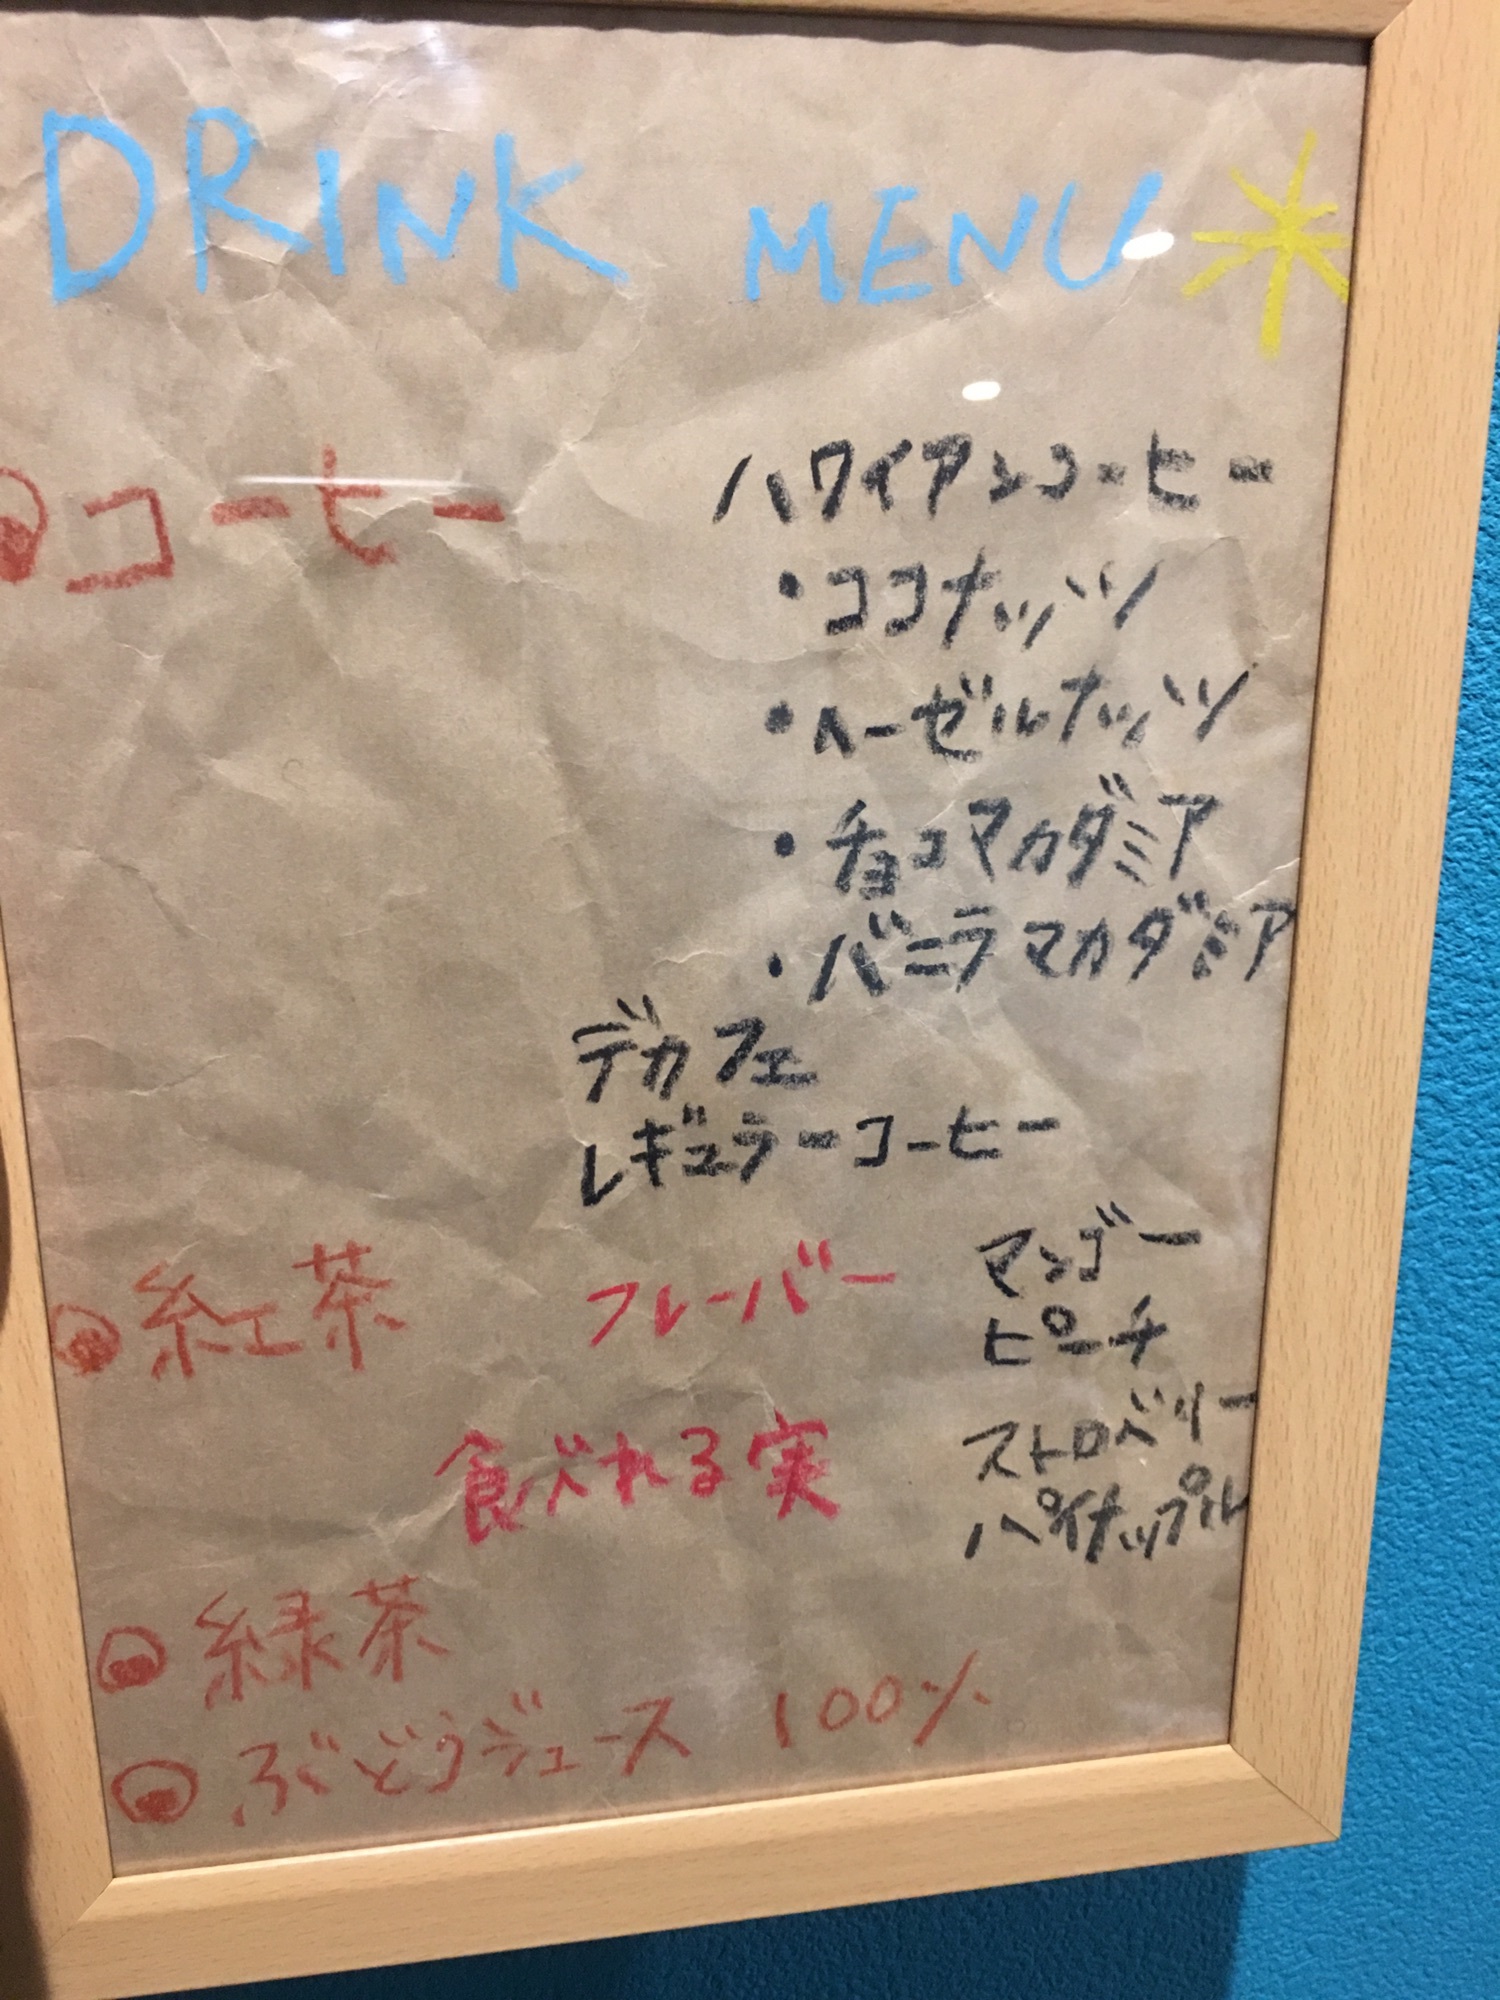 DRINK MENU
コーヒー ハワイアンコーヒー
・ココナッツ
・ヘーゼルナッツ
・チョコマカダミア
・バニラマカダミア
デカフェ
レギュラーコーヒー
紅茶 フレーバー マンゴー
ピーチ
食べれる実 ストロベリー
パイナップル
緑茶
ぶどうジュース 100%